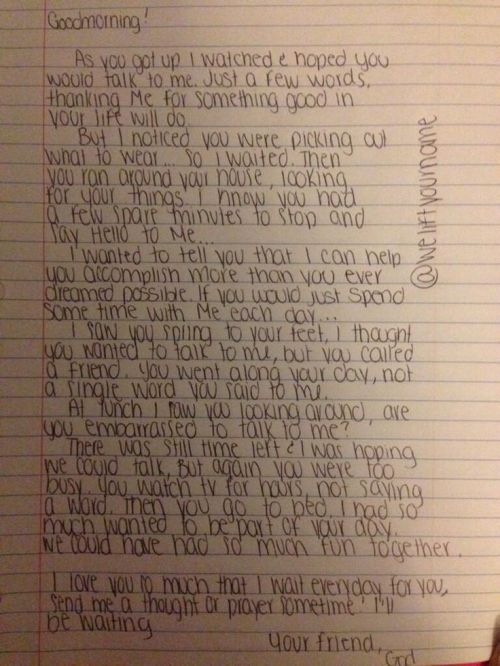 Goodmorning!
As you got up I watched & hoped you
would talk to me. Just a few words,
thanking Me for something good in
your life will do.
But I noticed you were picking out
what to wear... so I waited. Then
you ran around your house, looking
for your things. I know you had
a few spare minutes to stop and
say Hello to Me...
I wanted to tell you that I can help
you accomplish more than you ever
dreamed possible. If you would just spend
some time with Me each day...
I saw you spring to your feet, I thought
you wanted to talk to me, but you called
a friend. You went along your day, not
a single word you said to me.
At lunch I saw you looking around, are
you embarrassed to talk to me?
There was still time left & I was hoping
we could talk, But again you were too
busy. You watch tv for hours, not saying
a word. Then you go to bed. I had so
much wanted to be part of your day.
We could have had so much fun together.
I love you so much that I wait everyday for you,
send me a thought or prayer sometime! I'll
be waiting
Your friend,
God
@weliftyourname